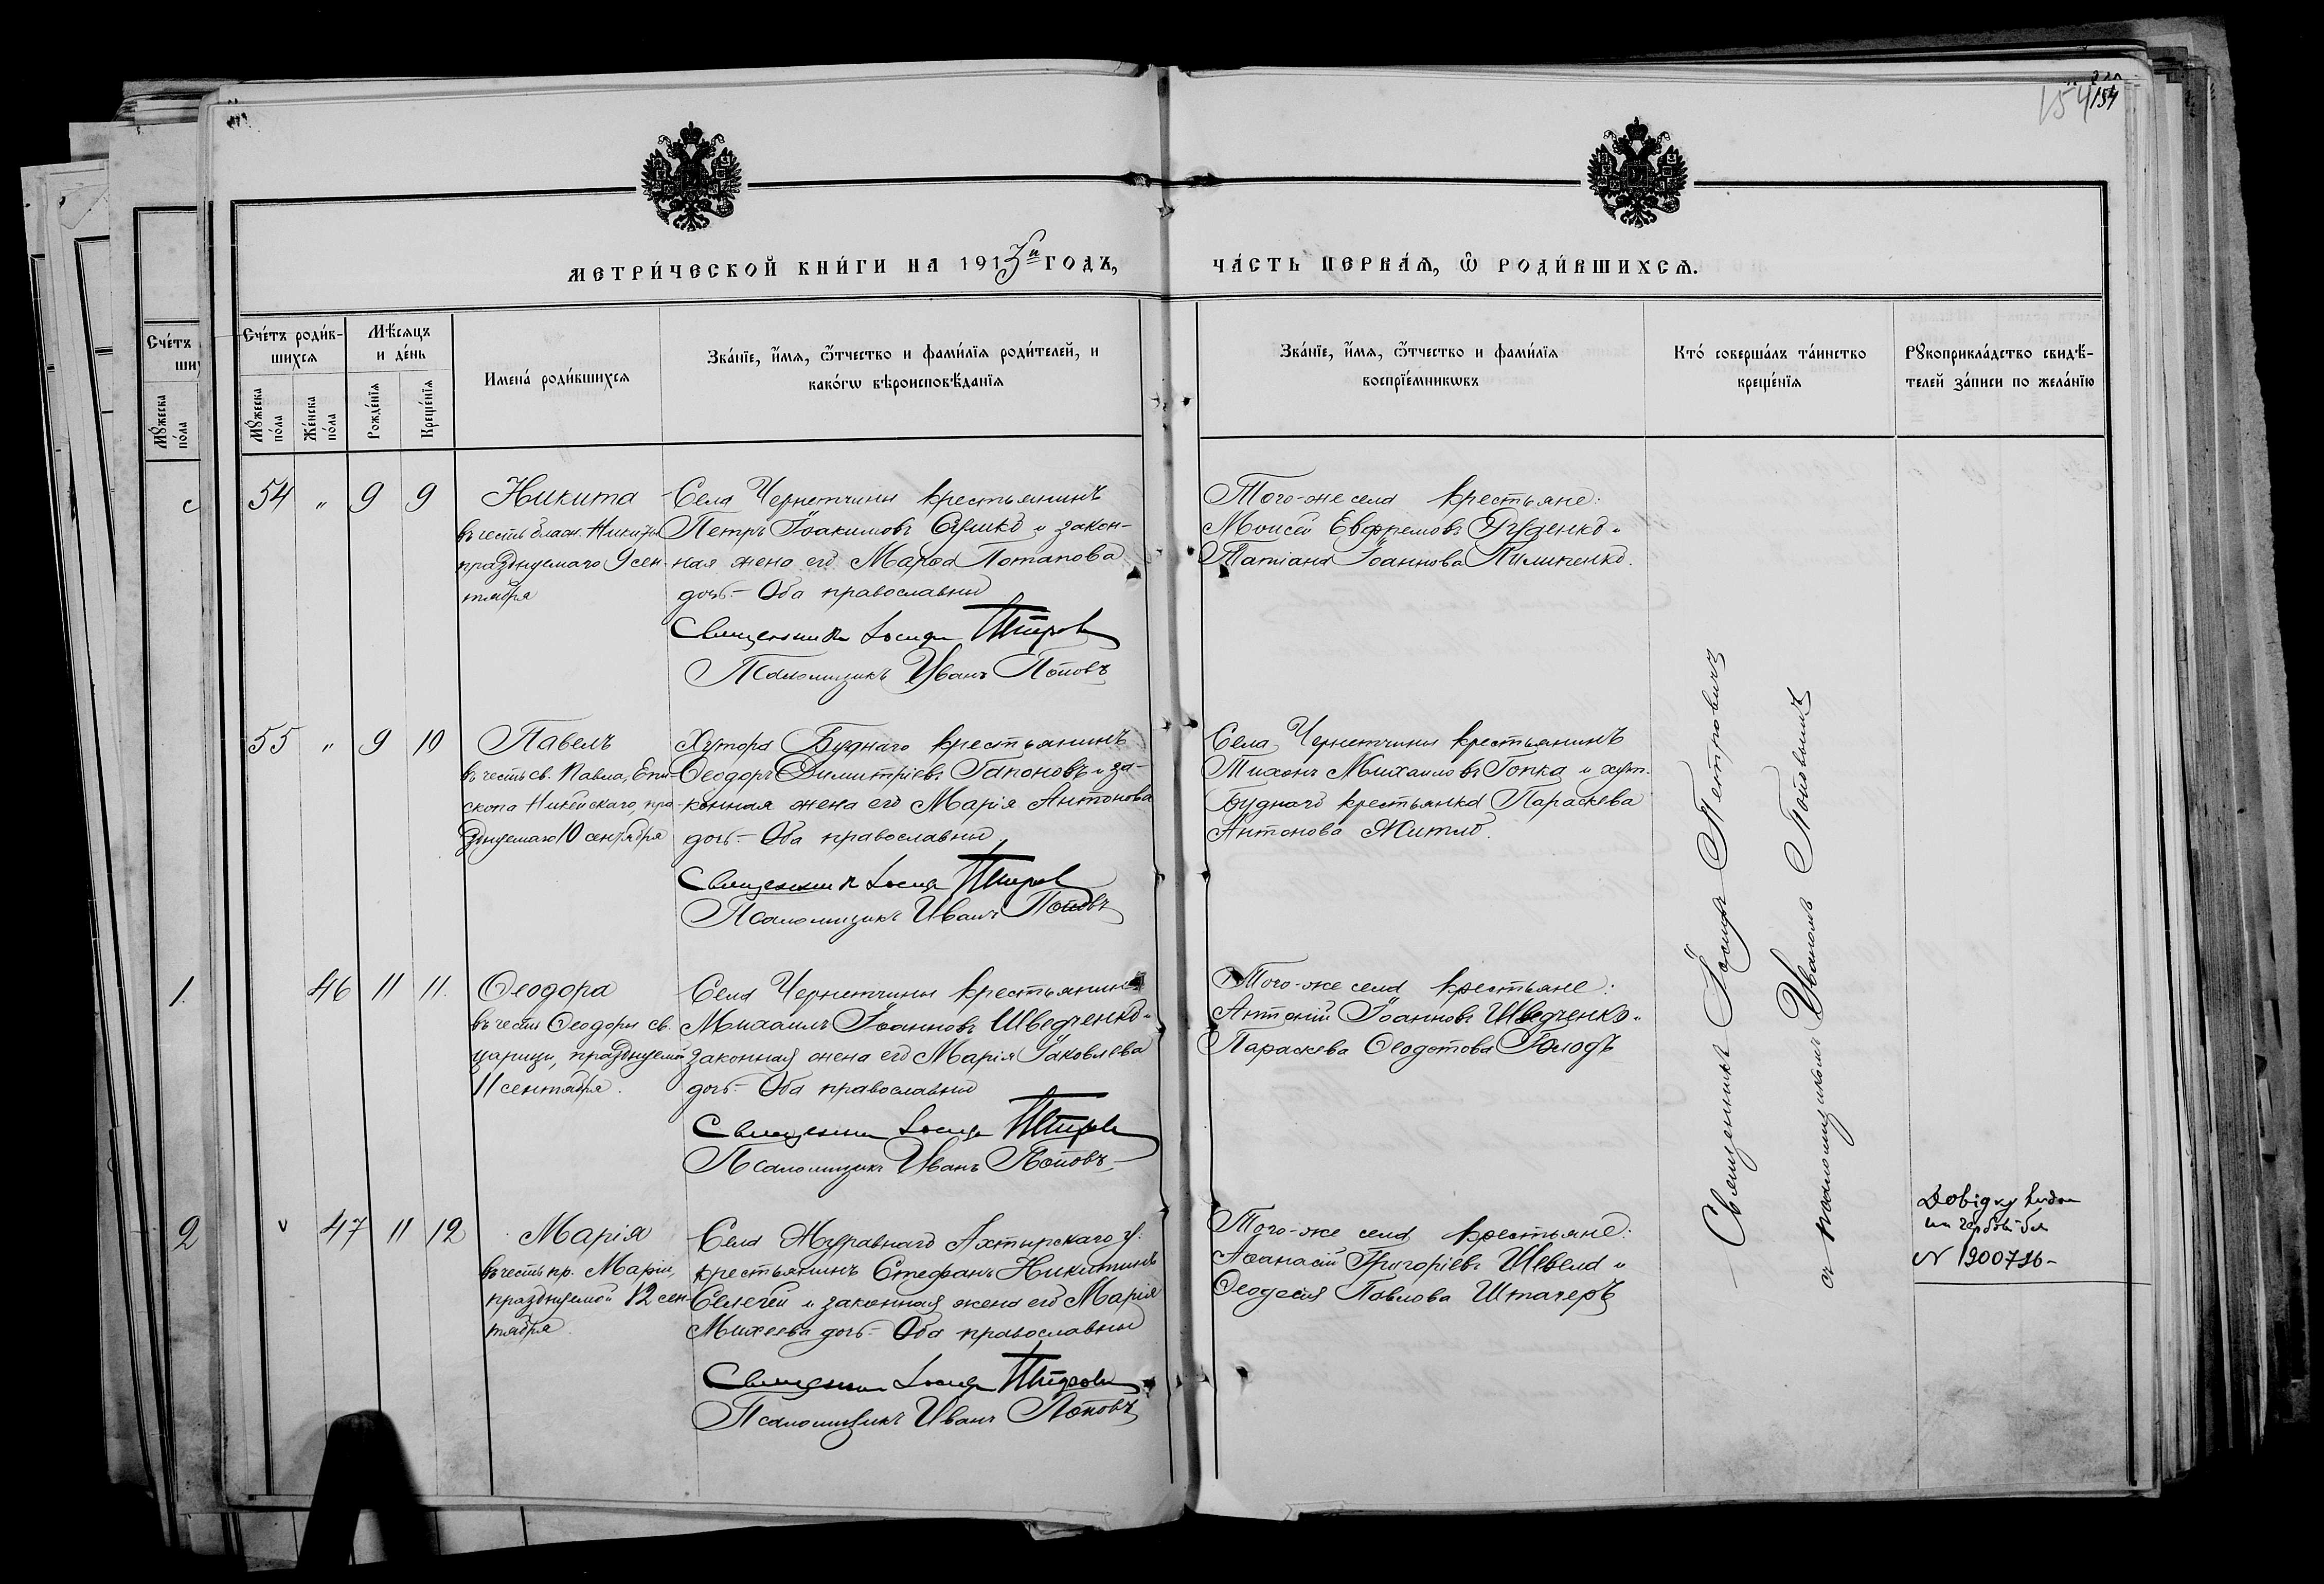 154
154
МЕТРИ́ЧЕСКОЙ КНИ́ГИ НА 1913й ГОДЪ,
ЧА́СТЬ ПЕРВА́Ѧ, Ѽ РОДИ́ВШИХСѦ.
Сче́тъ
ши
Мꙋ́жеска по́ла
Сче́тъ роди́в-
шихсѧ
Мꙋ́жеска по́ла
Же́нска по́ла
Мѣ́сѧцъ
и де́нь
Рожде́нїѧ
Креще́нїѧ
Имена́ роди́вшихсѧ
Зва́нїе, и҆́мѧ, ѻ҆́тчество и фами́лїѧ роди́телей, и
како́гѡ вѣроисповѣ́данїѧ
Зва́нїе, и҆́мѧ, ѻ҆́тчество и фами́лїѧ
воспрїе́мникѡвъ
Кто́ соверша́лъ та́инство
креще́нїѧ
Рꙋкоприкла́дство свидѣ́-
телей за́писи по жела́нїю
54 " 9 9
Никита
въ честь блаж. Никиты
празднуемаго 9 сен-
тября
Села Чернетчины крестьянинъ
Петръ Іоакимовъ и закон-
ная жена его Марѳа Потапова
дочь.- Оба православны
Священникъ Іосифъ Петровъ
Псаломщикъ Иванъ Поповъ
Того-же села крестьяне:
Моисей Евфремовъ Яценко и
Татіана Іоаннова Пилипенко.
55 " 9 10
Павелъ
въ честь св. Павла, Епи-
скопа Никейскаго, пра-
зднуемаго 10 сентября
Хутора Буднаго крестьянинъ
Ѳеодоръ Димитріевъ Гапоновъ и за-
конная жена его Марія Антонова
дочь.- Оба православны
Священникъ Іосифъ Петровъ
Псаломщикъ Иванъ Поповъ
Села Чернетчины крестьянинъ
Тихонъ Михаиловъ Гопка и хут.
Буднаго крестьянка Параскева
Антонова Житло.
1.
46 11 11.
Ѳеодора
въ честь Ѳеодоры св.
царицы, празднуемой
11 сентября.
Села Чернетчины крестьянинъ
Михаилъ Іоанновъ Шведченко и
законная жена его Марія Іаковлева
дочь.- Оба православны
Священникъ Іосифъ Петровъ
Псаломщикъ Иванъ Поповъ
Того-же села крестьяне:
Антоній Іоанновъ Шведченко и
Параскева Ѳеодотова Голодъ
2
v 47 11 12
Марія
въ честь пр. Маріи,
празднуемой 12 сен-
тября.
Села Журавнаго Ахтырскаго у.
крестьянинъ Стефанъ Никитинъ
Селегей и законная жена его Марія
Михеева дочь.- Оба православны
Священникъ Іосифъ Петровъ
Псаломщикъ Иванъ Поповъ
Того-же села крестьяне:
Аѳанасій Григоріевъ Шевела и
Ѳеодосія Павлова Штачеръ
Священникъ Іосифъ Петровичъ
съ псаломщикомъ Иваномъ Поповымъ
Довідку
N 1900796-